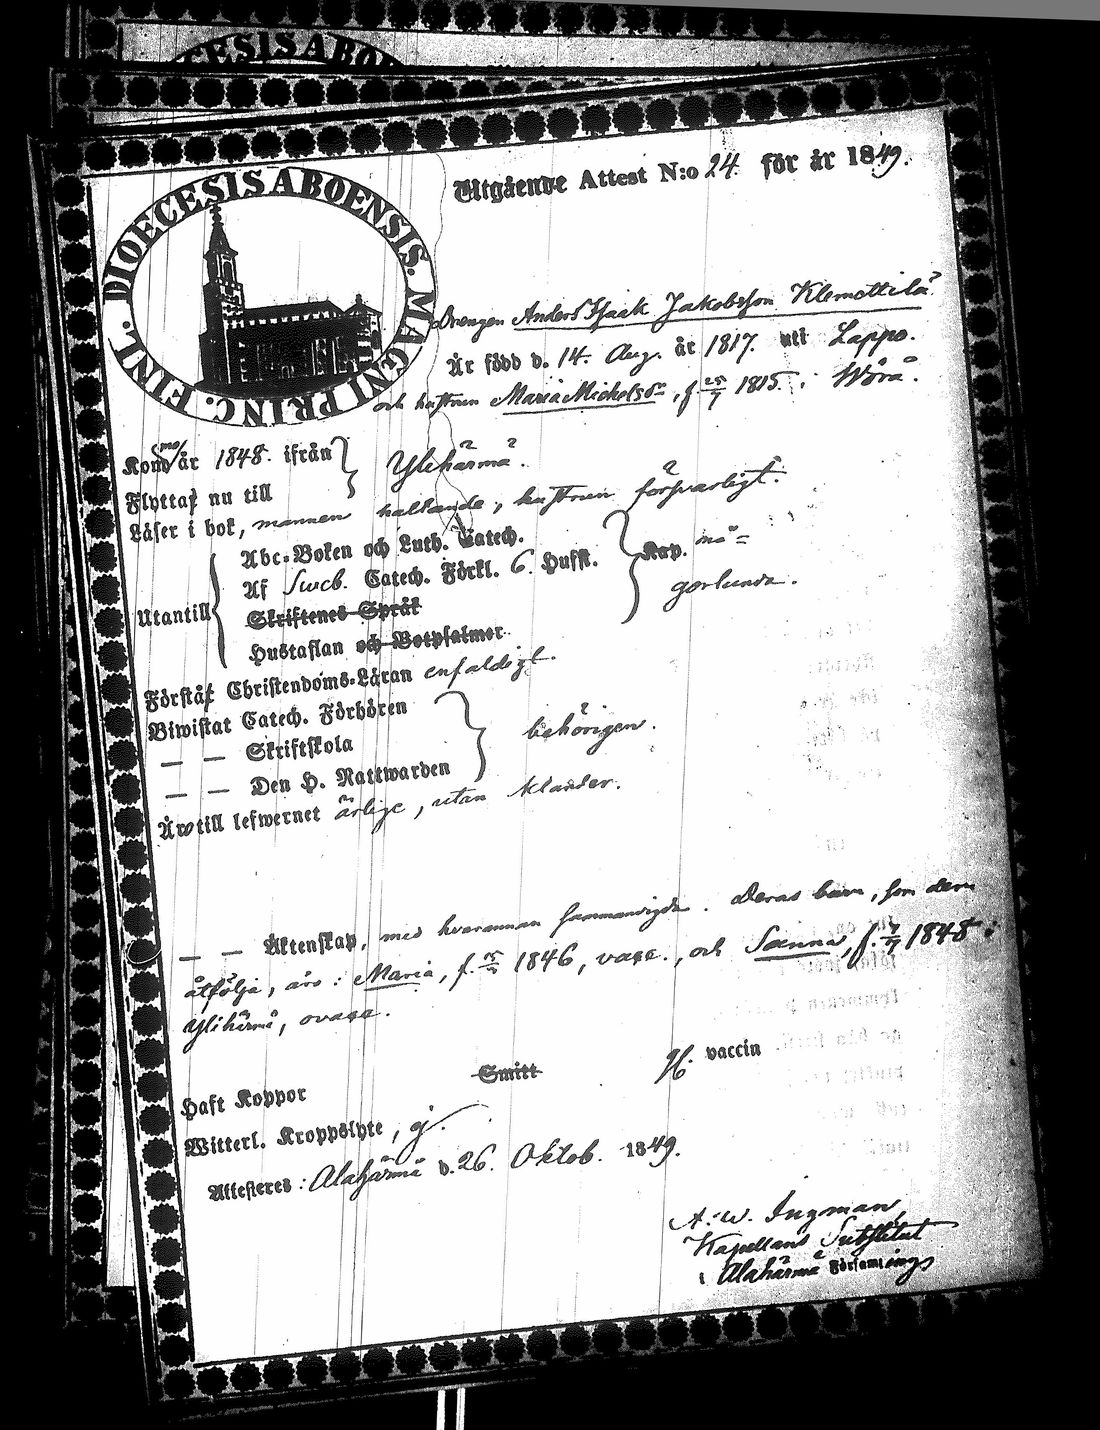 CESIS ABOE
DIOECESIS ABOENSIS. MAGNI PRINC. FINL.
Utgående Attest N:o 24. för år 1849.
Drengen Anders Isaak Jakobsson Klemettilä
Är född d. 14. Aug. år 1817. uti Lappo.
och hustrun Maria Michelsdr, f. 25/7 1815. i Wörå.
Komna år 1848. ifrån } Ylihärmä.
Flyttat nu till
Läser i bok, mannen haltande, hustrun försvarligt.
Abc-Boken och Luth. Catech.
Af Sveb. Catech. Förkl. 6. Hufst. } Kap. må-
Utantill { Skriftenes Språk gorlunda.
Hustaflan och Botpsalmer
Förstå Christendoms-Läran enfaldigt.
Biwistat Catech. Förhören
— — Skriftskola } behörigen.
— — Den H. Nattwarden
Äro till lefwernet ärlige, utan klander.
— — Äktenskap, med hvarannan sammanvigda. Deras barn, som dem
åtfölja, äro: Maria, f. 1846, vacc., och Sanna, f. 7/9 1848 i
Ylihärmä, ovacc.
Haft Koppor Smitt vaccin
Witterl. Kroppslyte, ej.
Attesteres: Alahärmä d. 26. Oktob. 1849.
A. W. Ingman,
Kapellans Substitut
i Alahärmä Församlings